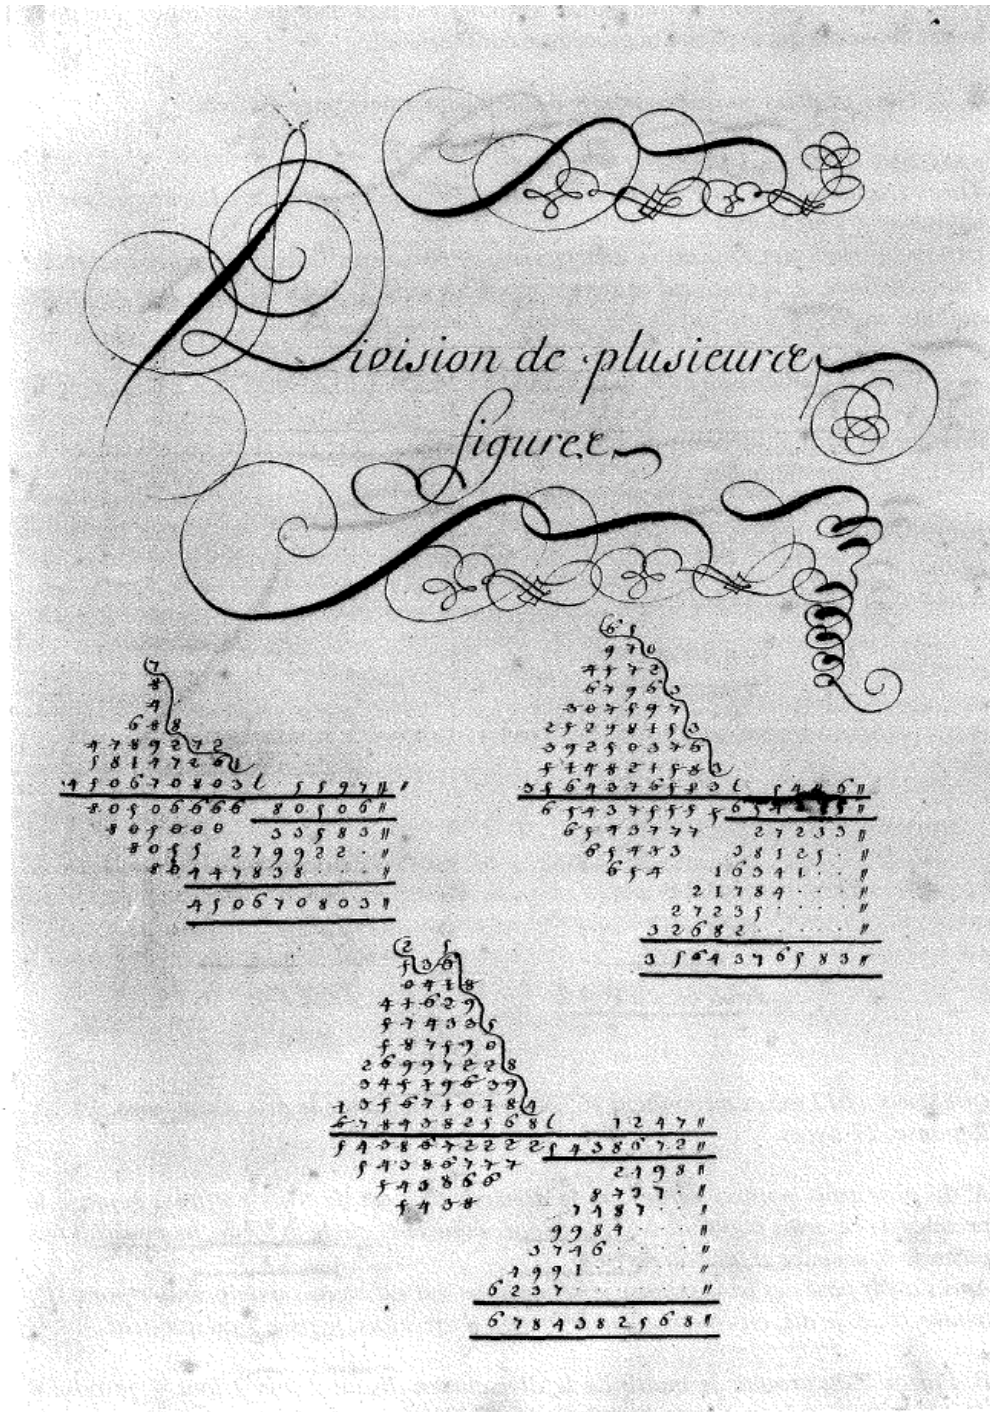 Division de plusieurs
figures
7
8
4
6 8 8
4 7 8 9 2 7 2
5 8 1 4 7 2 6 1
4 5 0 6 7 0 8 0 3 ( 5 5 9 7 〃
8 0 5 0 6 6 6 6 8 0 5 0 6 〃
8 0 5 0 0 0 3 3 5 8 3 〃
8 0 5 5 2 7 9 9 2 2 · 〃
8 0 4 4 7 8 3 8 · · · 〃
4 5 0 6 7 0 8 0 3 〃
6 5
9 7 0
4 5 7 2
6 7 9 6 3
3 0 7 5 9 7
2 5 2 9 8 1 5 3
3 9 2 5 0 3 7 6
5 1 4 8 2 1 5 8 3
3 5 6 4 3 7 6 5 8 3 ( 5 4 4 6 〃
6 5 4 3 7 7 7 7 5 6 5 4
6 5 4 3 7 7 7 2 7 2 3 3 〃
6 5 4 3 3 3 8 1 2 5 · 〃
6 5 4 1 6 3 4 1 · · 〃
2 1 7 8 4 · · · 〃
2 7 2 3 5 · · · · 〃
3 2 6 8 2 · · · · · 〃
3 5 6 4 3 7 6 5 8 3 〃
2 5
5 3 6
0 4 1 8
4 1 6 2 9
5 7 4 3 3 5
5 8 7 5 9 0
2 6 9 9 7 2 2 8
3 4 5 7 9 6 3 9
1 3 5 6 7 1 0 7 8 4
6 7 8 4 3 8 2 5 6 8 ( 1 2 4 7 〃
5 4 3 8 6 7 2 2 2 2 5 4 3 8 6 7 2 〃
5 4 3 8 6 7 7 7 2 4 9 8 〃
5 4 3 8 6 6 8 7 3 7 · 〃
5 4 3 8 7 4 8 7 · · 〃
9 9 8 4 · · · 〃
3 7 4 6 · · · · 〃
4 9 9 1 · · · · · 〃
6 2 3 7 · · · · · · 〃
6 7 8 4 3 8 2 5 6 8 〃